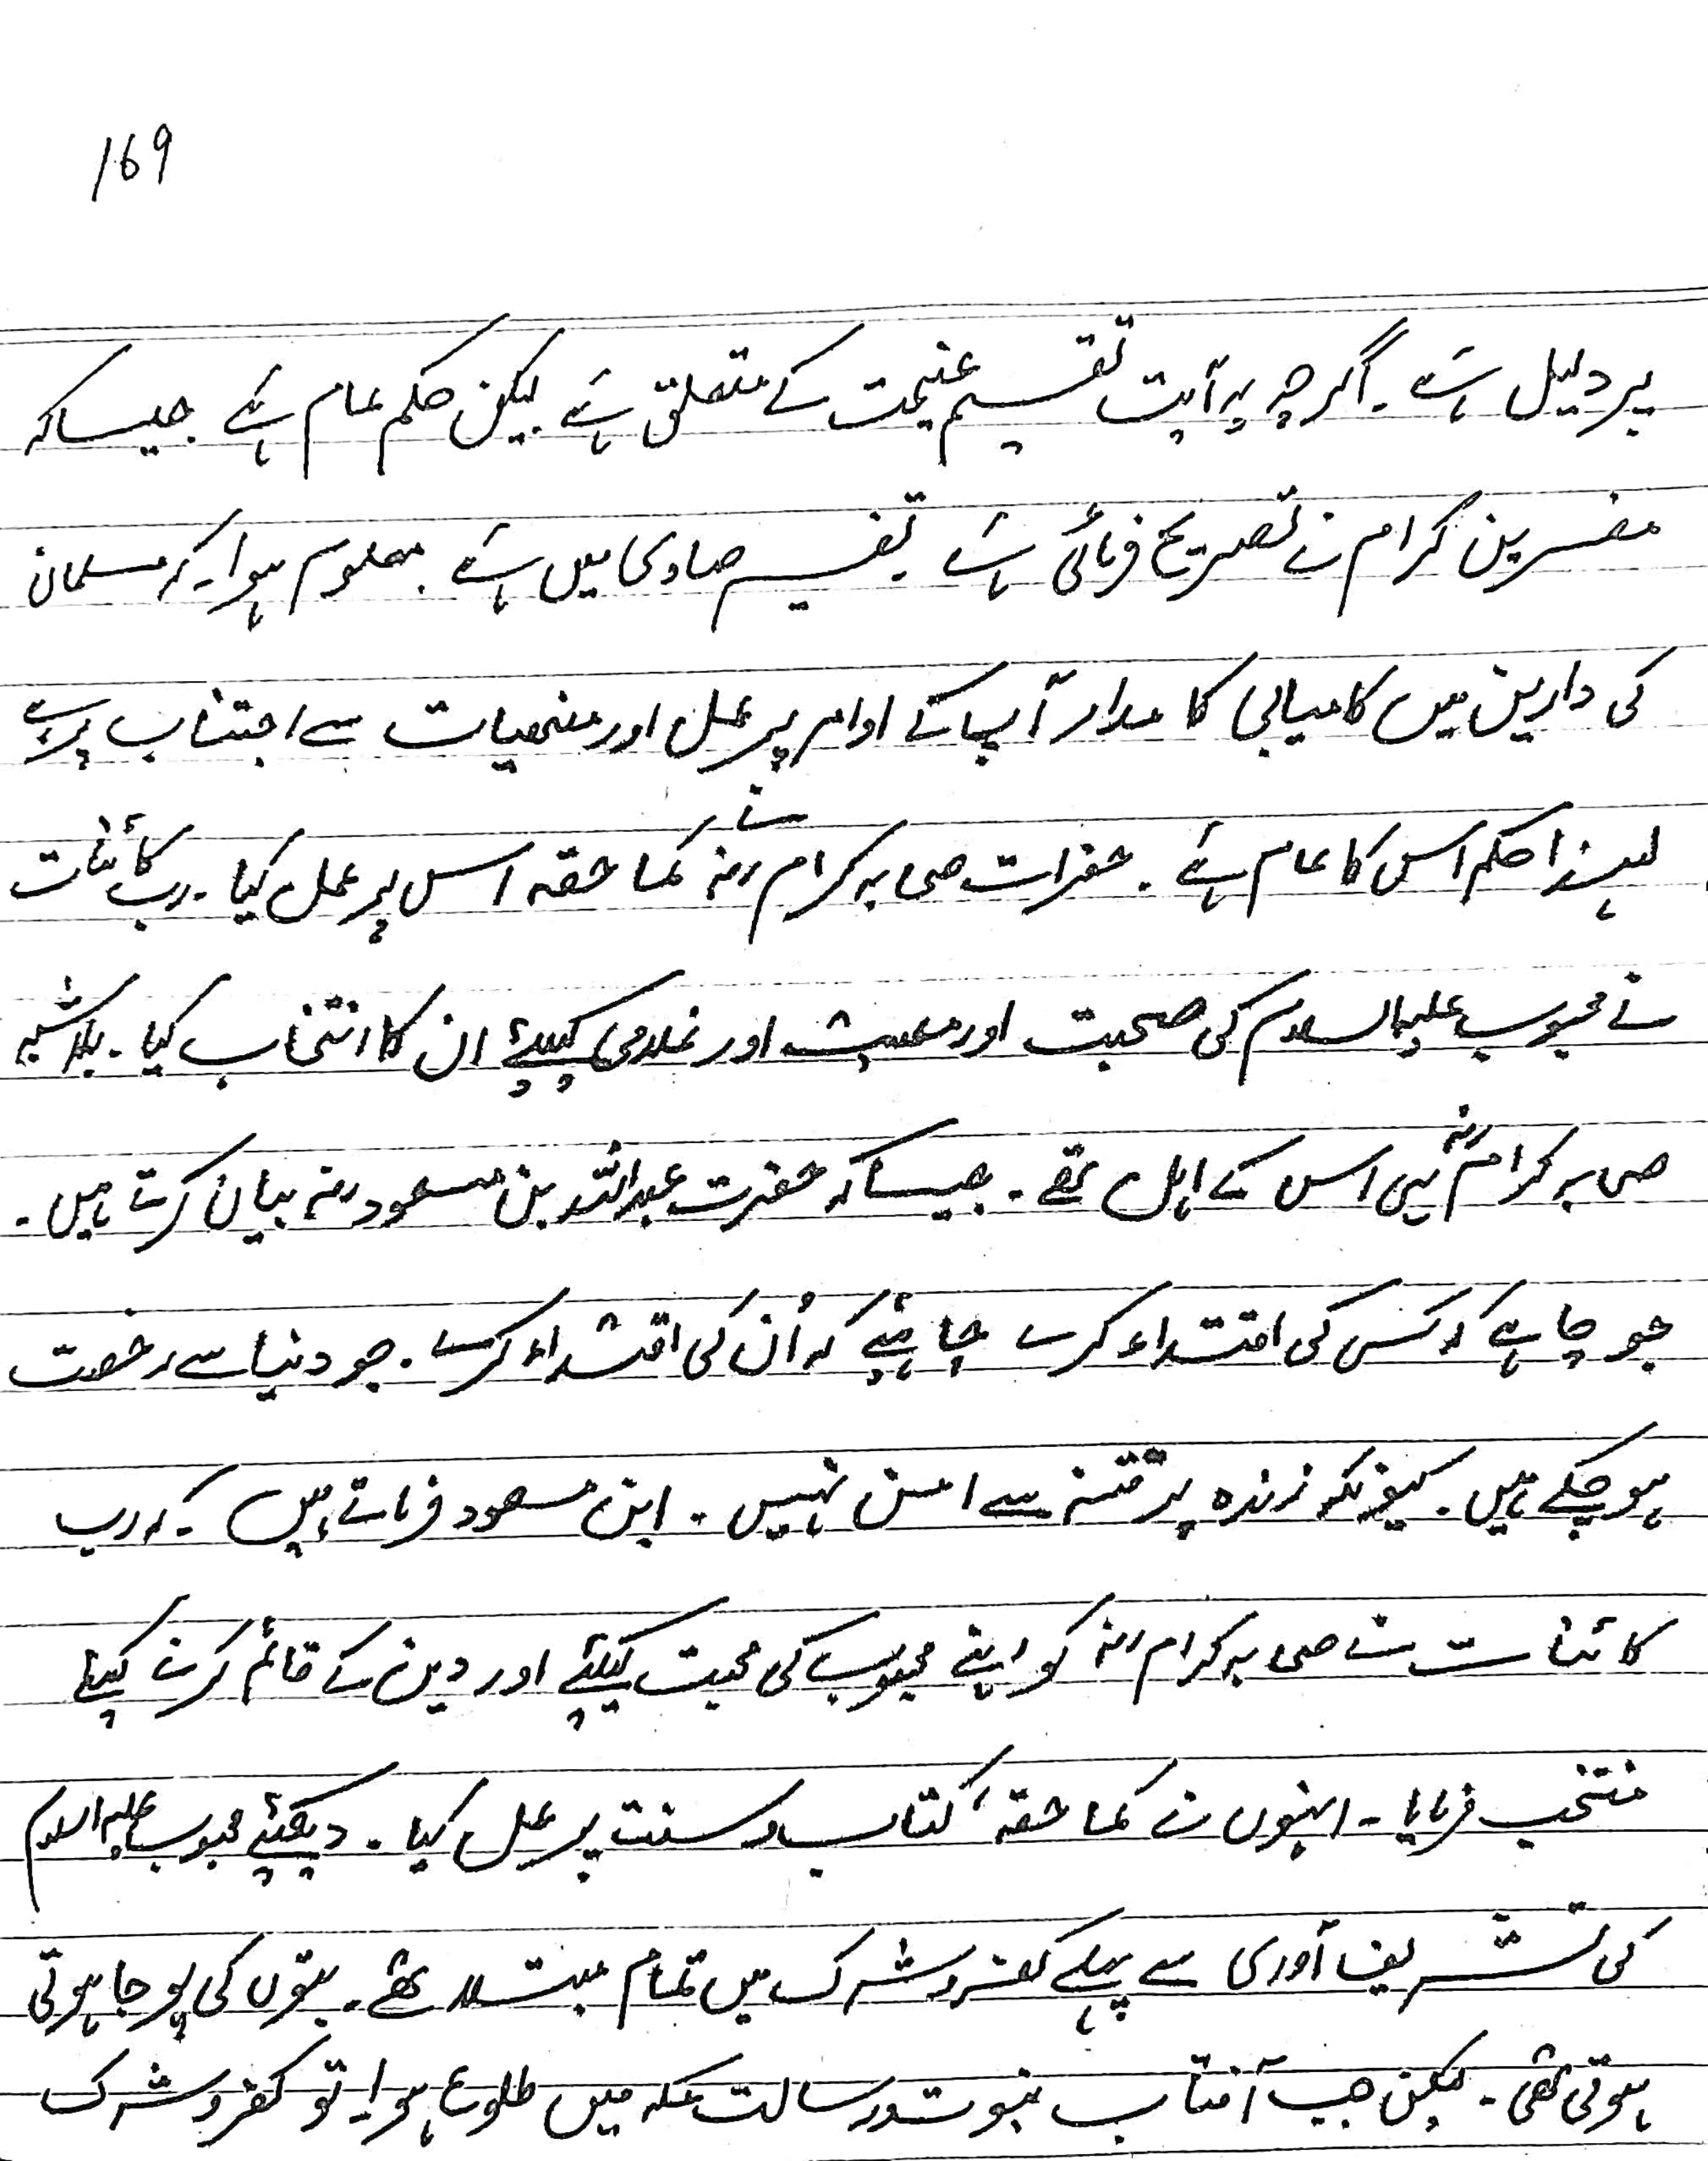 169
پر دلیل ہے۔ اگرچہ یہ آیت تقسیم غنیمت کے متعلق ہے لیکن حکم عام ہے جیسا کہ
مفسرین کرام نے تصریح فرمائی ہے تفسیر صاوی میں ہے۔ معلوم ہوا۔ کہ مسلمان
کی دارین میں کامیابی کا مدار آپ کے اوامر پر عمل اور منھیات سے اجتناب پر ہے
لہذا حکم اس کا عام ہے۔ حضرات صحابہ کرام رضہ نے کما حقہ اس پر عمل کیا۔ رب کائنات
نے محبوب علیہ السلام کی صحبت اور معیت اور غلامی کیلئے ان کا انتخاب کیا۔ بلا شبہ
صحابہ کرام رضہ ہی اس کے اہل تھے۔ جیسا کہ حضرت عبداللہ بن مسعود رضہ بیان کرتے ہیں۔
جو چاہے کہ کسی کی اقتداء کرے چاہئیے کہ اُن کی اقتداء کرے۔ جو دنیا سے رخصت
ہو چکے ہیں۔ کیونکہ زندہ پر فتنہ سے امن نہیں۔ ابن مسعود فرماتے ہیں۔ کہ رب
کائنات نے صحابہ کرام رضہ کو اپنے محبوب کی محبت کیلئے اور دین کے قائم کرنے کیلئے
منتخب فرمایا۔ انہوں نے کما حقہٗ کتاب و سنت پر عمل کیا۔ دیکھئیے محبوب علیہ السلام
کی تشریف آوری سے پہلے کفر و شرک میں تمام مبتلا تھے۔ بتوں کی پوجا ہوتی
ہوتی تھی۔ لیکن جب آفتاب نبوت و رسالت مکہ میں طلوع ہوا۔ تو کفر و شرک